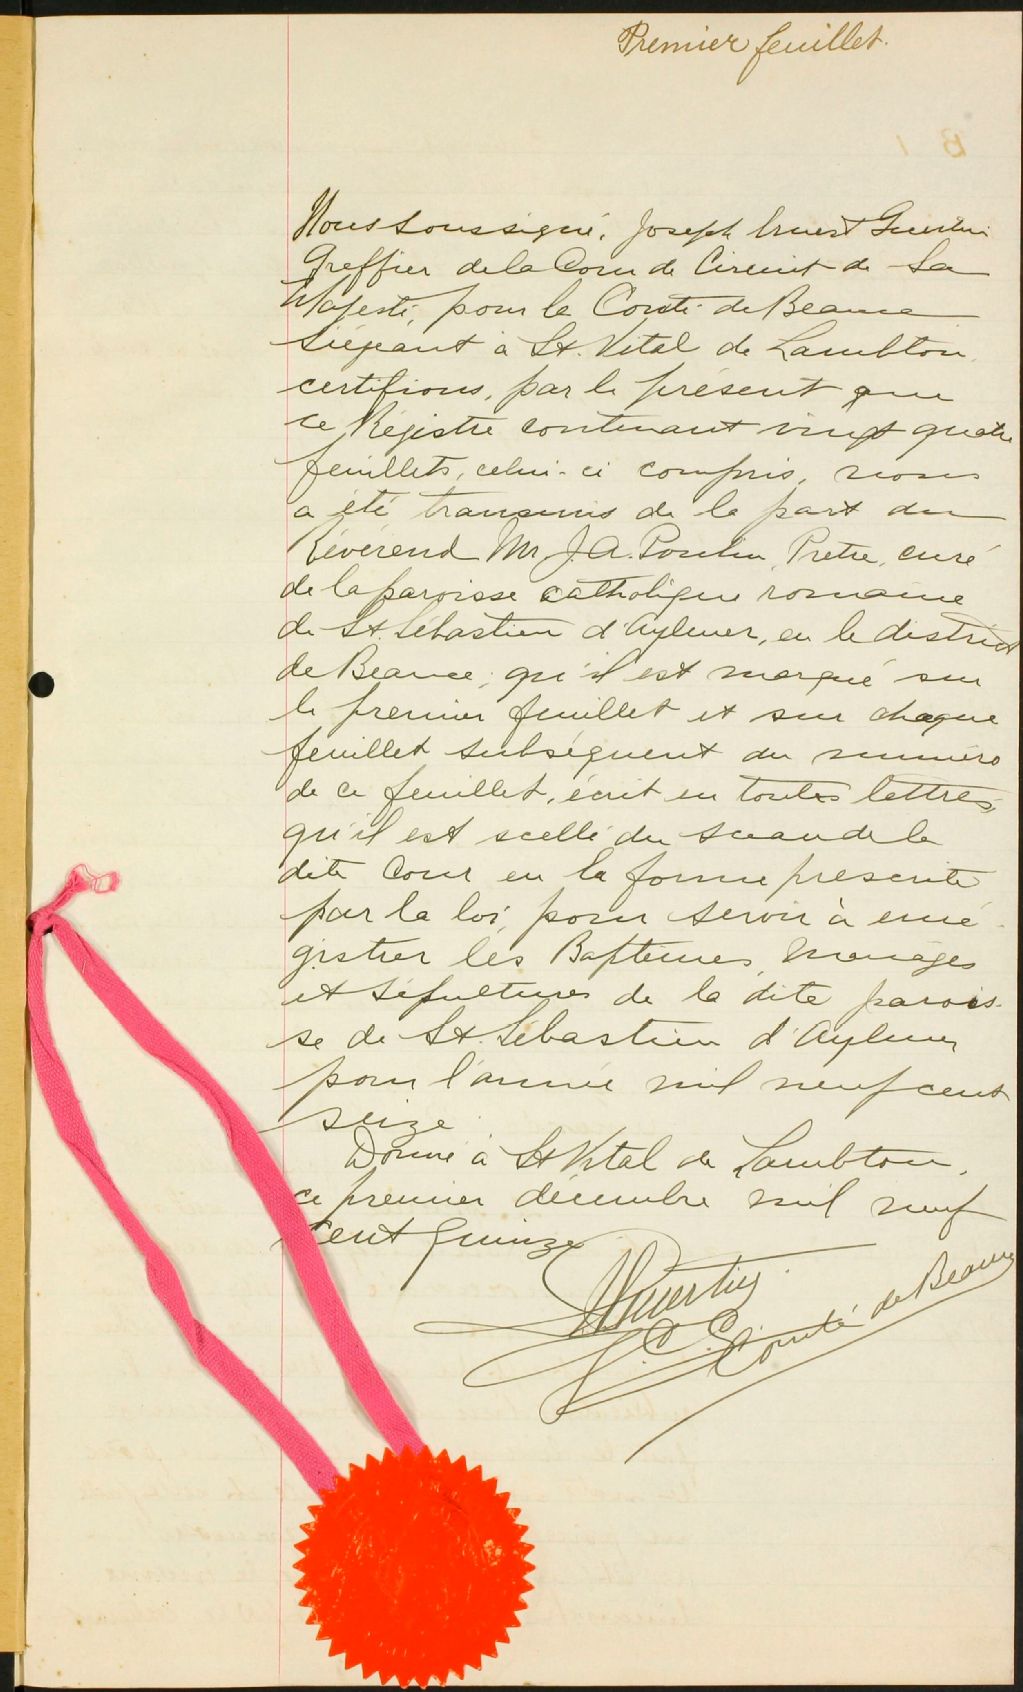 Premier feuillet.
Nous soussigné, Joseph Ernest Guertin
Greffier de la Cour de Circuit de Sa
Majesté, pour le Comté de Beauce
siégeant à St. Vital de Lambton
certifions, par le présent que
ce Régistre contenant vingt quatre
feuillets, celui-ci compris, nous
a été transmis de la part du
Révérend Mr J. A. Poulin, Prêtre, curé
de la paroisse catholique romaine
de St. Sébastien d'Aylmer, en le district
de Beauce; qu'il est marqué sur
le premier feuillet et sur chaque
feuillet subséquent du numéro
de ce feuillet, écrit en toutes lettres,
qu'il est scellé du sceau de la
dite Cour en la forme prescrite
par la loi, pour servir à enré-
gistrer les Baptêmes, Mariages
et Sépultures de la dite parois-
se de St. Sébastien d'Aylmer
pour l'année mil neuf cent
seize.
Donné à St Vital de Lambton,
ce premier décembre mil neuf
cent quinze
Guertin
G. C. C. Comté de Beauce